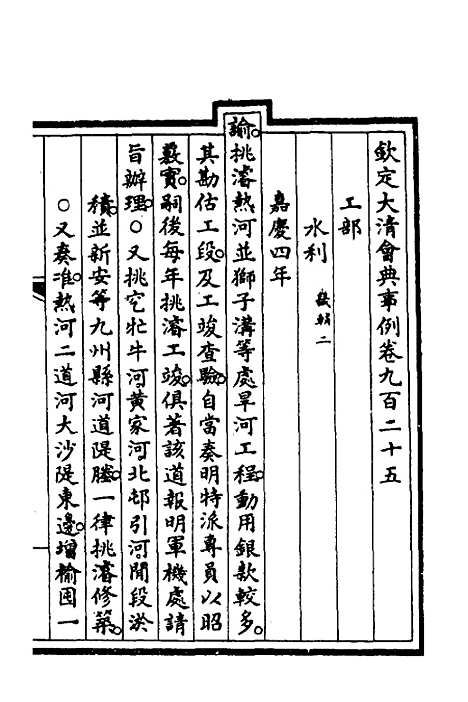 欽定大清會典事例卷九百二十五
工部
水利 畿輔二
嘉慶四年
諭。挑濬熱河並獅子溝等處旱河工程。動用銀款較多。
其勘估工段。及工竣查驗。自當奏明特派專員以昭
覈實。嗣後每年挑濬工竣。俱著該道報明軍機處請
旨辦理。○又挑空牤牛河黃家河北邨引河閒段淤
積。並新安等九州縣河道隄塍。一律挑濬修築。
○又奏准。熱河二道河大沙隄東邊。增榆囤一